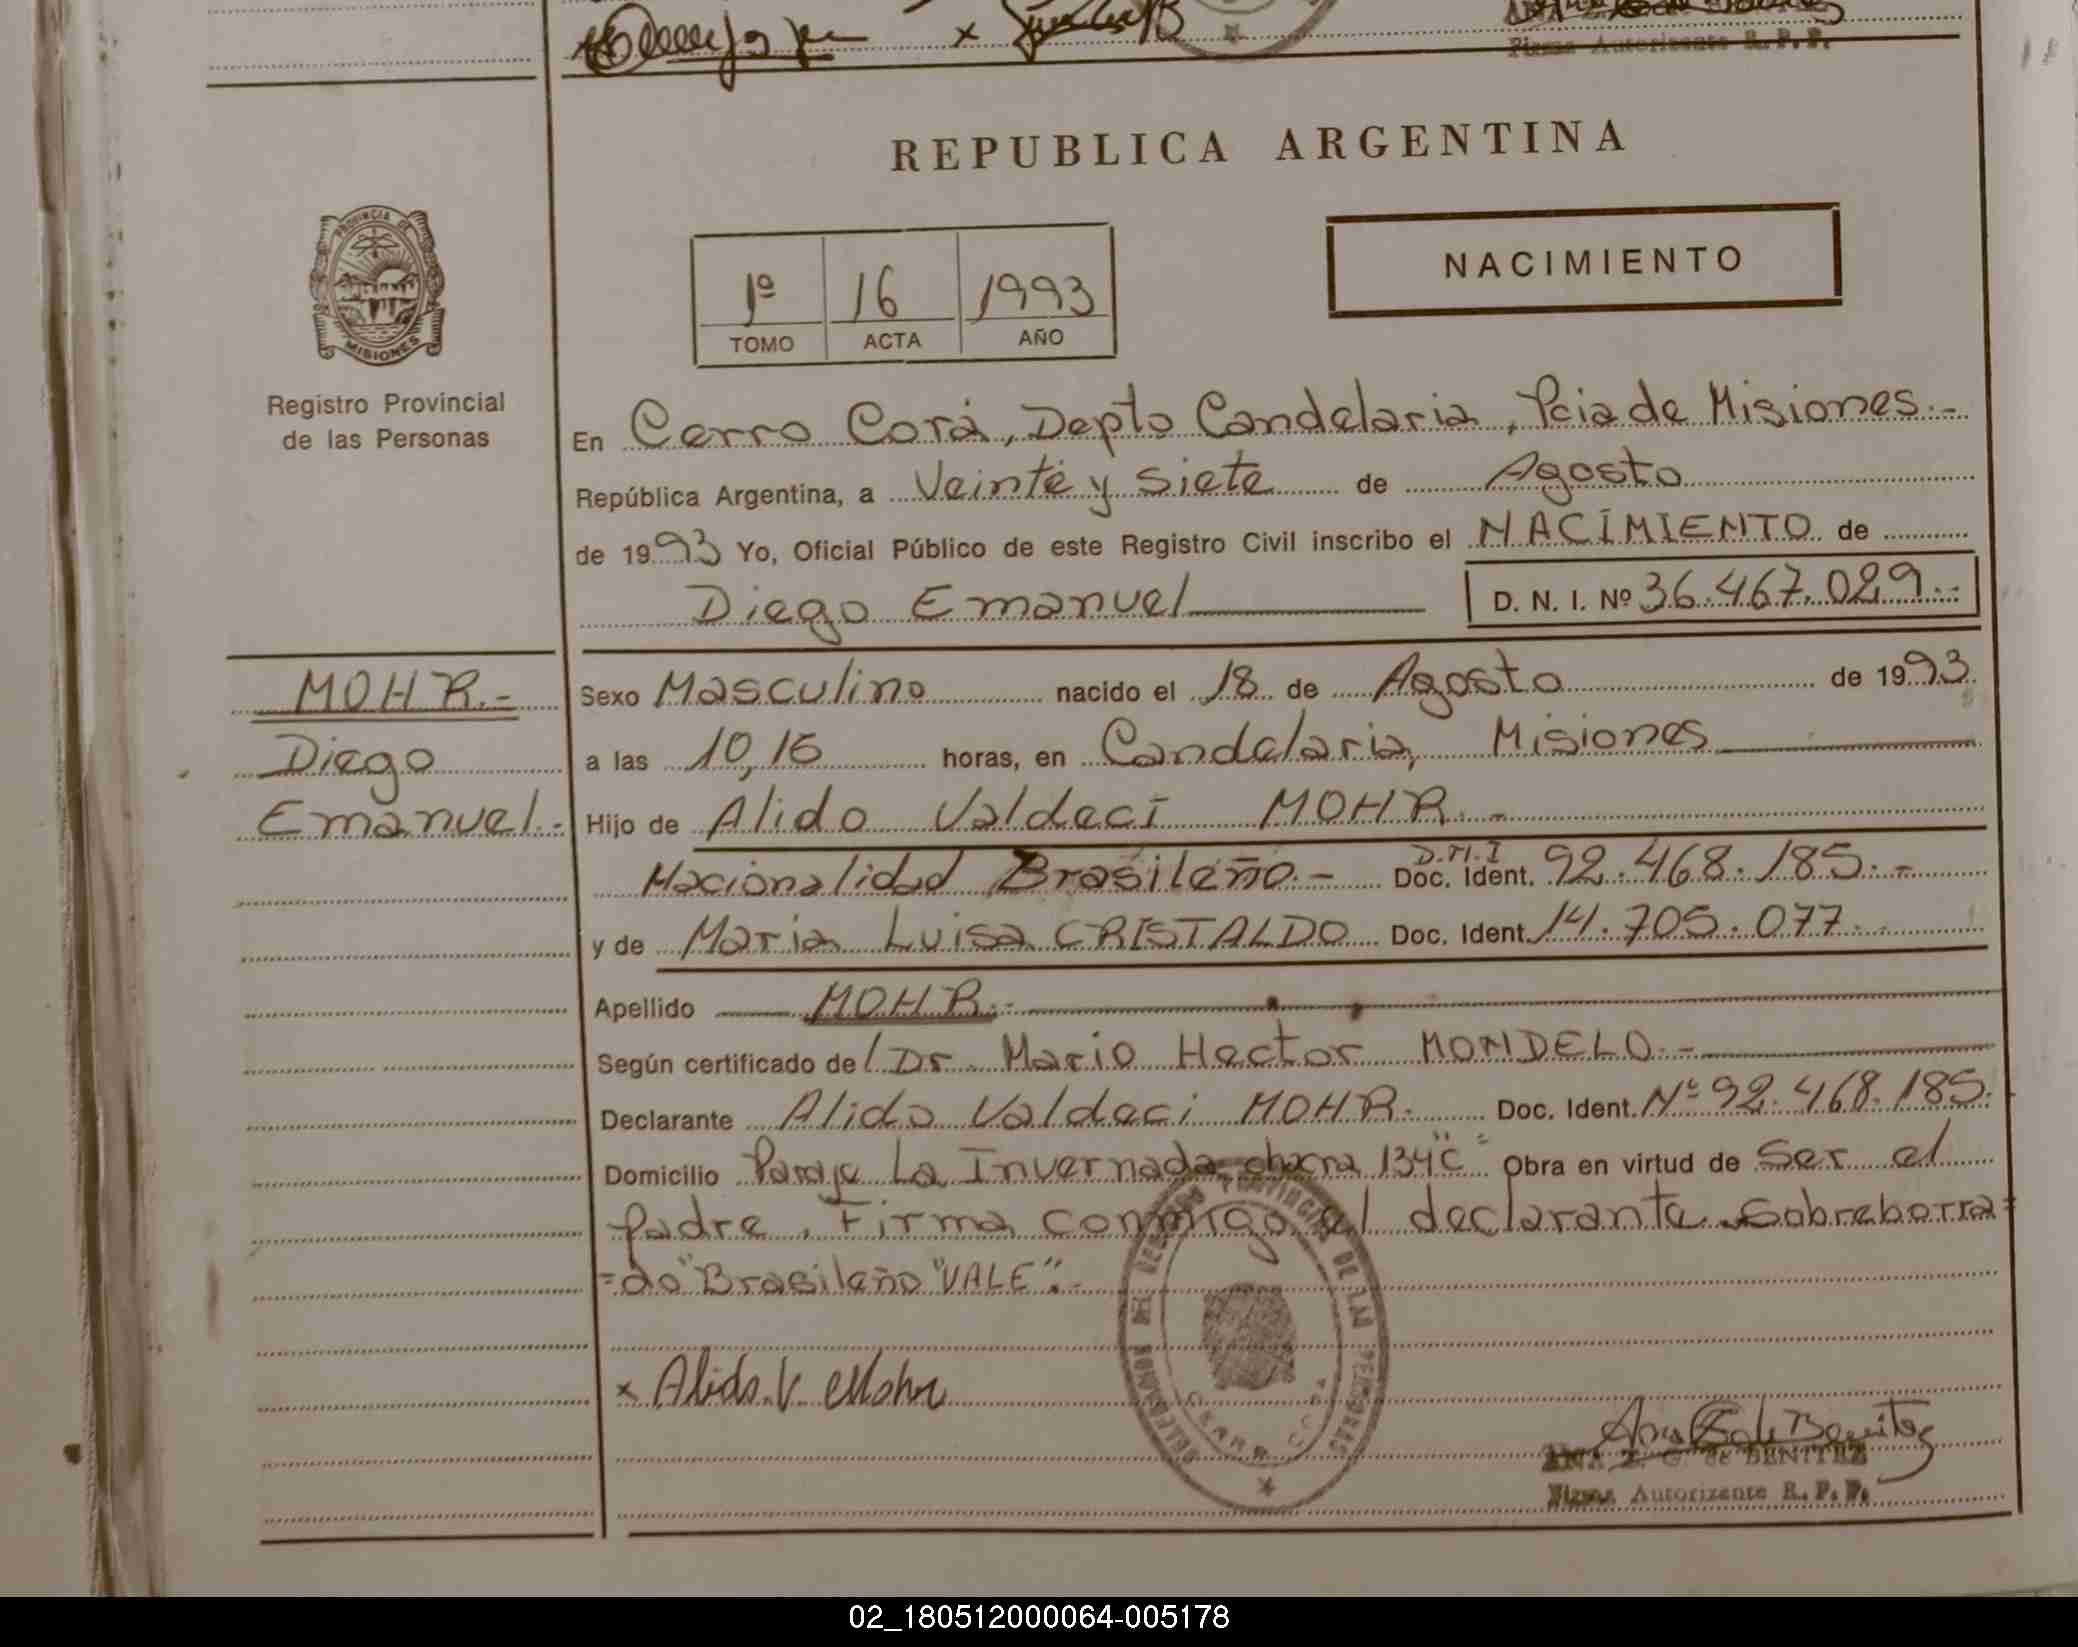 Firma Autorizante R. P. P.
REPUBLICA ARGENTINA
PROVINCIA DE
MISIONES
Registro Provincial
de las Personas
NACIMIENTO
1º 16 1993
TOMO ACTA AÑO
En Cerro Corá, Depto Candelaria, Pcia de Misiones.-
República Argentina, a Veinte y Siete de Agosto
de 1993 Yo, Oficial Público de este Registro Civil inscribo el NACIMIENTO de
Diego Emanuel D. N. I. Nº 36.467.029.-
MOHR.-
Diego
Emanuel.-
Sexo Masculino nacido el 18 de Agosto de 1993
a las 10,15 horas, en Candelaria, Misiones
Hijo de Alido Valdeci MOHR.-
Nacionalidad Brasileño.- D.N.I Doc. Ident. 92.468.185.-
y de Maria Luisa CRISTALDO Doc. Ident. 14.705.077.
Apellido MOHR.-
Según certificado de Dr. Mario Hector MONDELO.-
Declarante Alido Valdeci MOHR. Doc. Ident. Nº 92.468.185.
Domicilio Paraje La Invernada chacra 134"C" Obra en virtud de Ser el
padre. Firma conmigo el declarante. Sobreborra=
=do "Brasileño "VALE".-
x Alido. V. Mohr
DEL REGISTRO PROVINCIAL DE LAS PERSONAS
CERRO CORA
ANA Z. G. de BENITEZ
Firma Autorizante R. P. P.
02_180512000064-005178